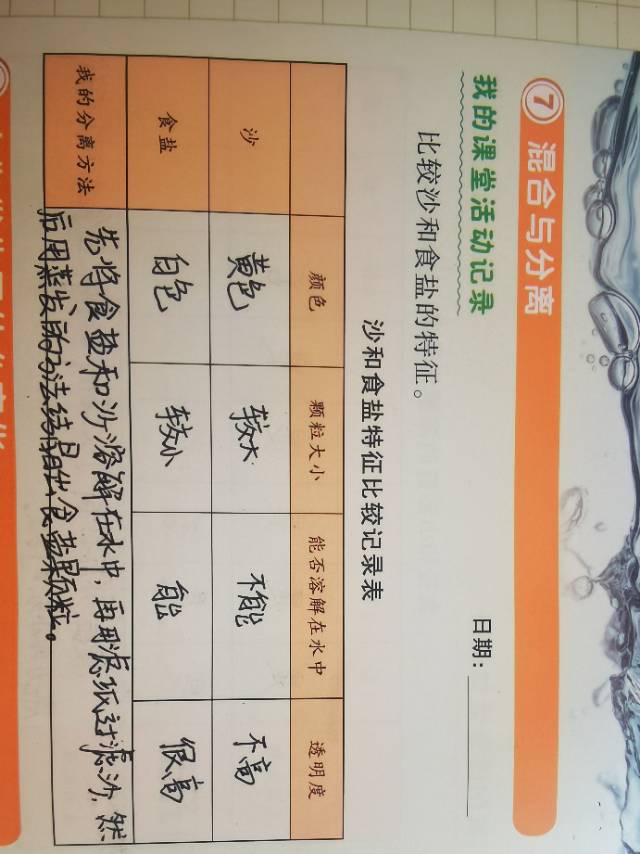 ⑦ 混合与分离
我的课堂活动记录 日期：
比较沙和食盐的特征。
沙和食盐特征比较记录表
颜色 颗粒大小 能否溶解在水中 透明度
沙 黄色 较大 不能 不高
食盐 白色 较小 能 很高
我的分离方法 先将食盐和沙溶解在水中，再用滤纸过滤沙，然
后用蒸发的方法结晶出食盐颗粒。